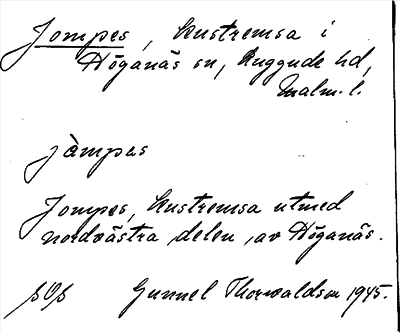 Jompes, kustremsa i
Höganäs sn, Luggude hd,
Malm. l.
jàmpas
Jompes, kustremsa utmed
nordvästra delen av Höganäs.
Gunnel Thorwaldson 1945.